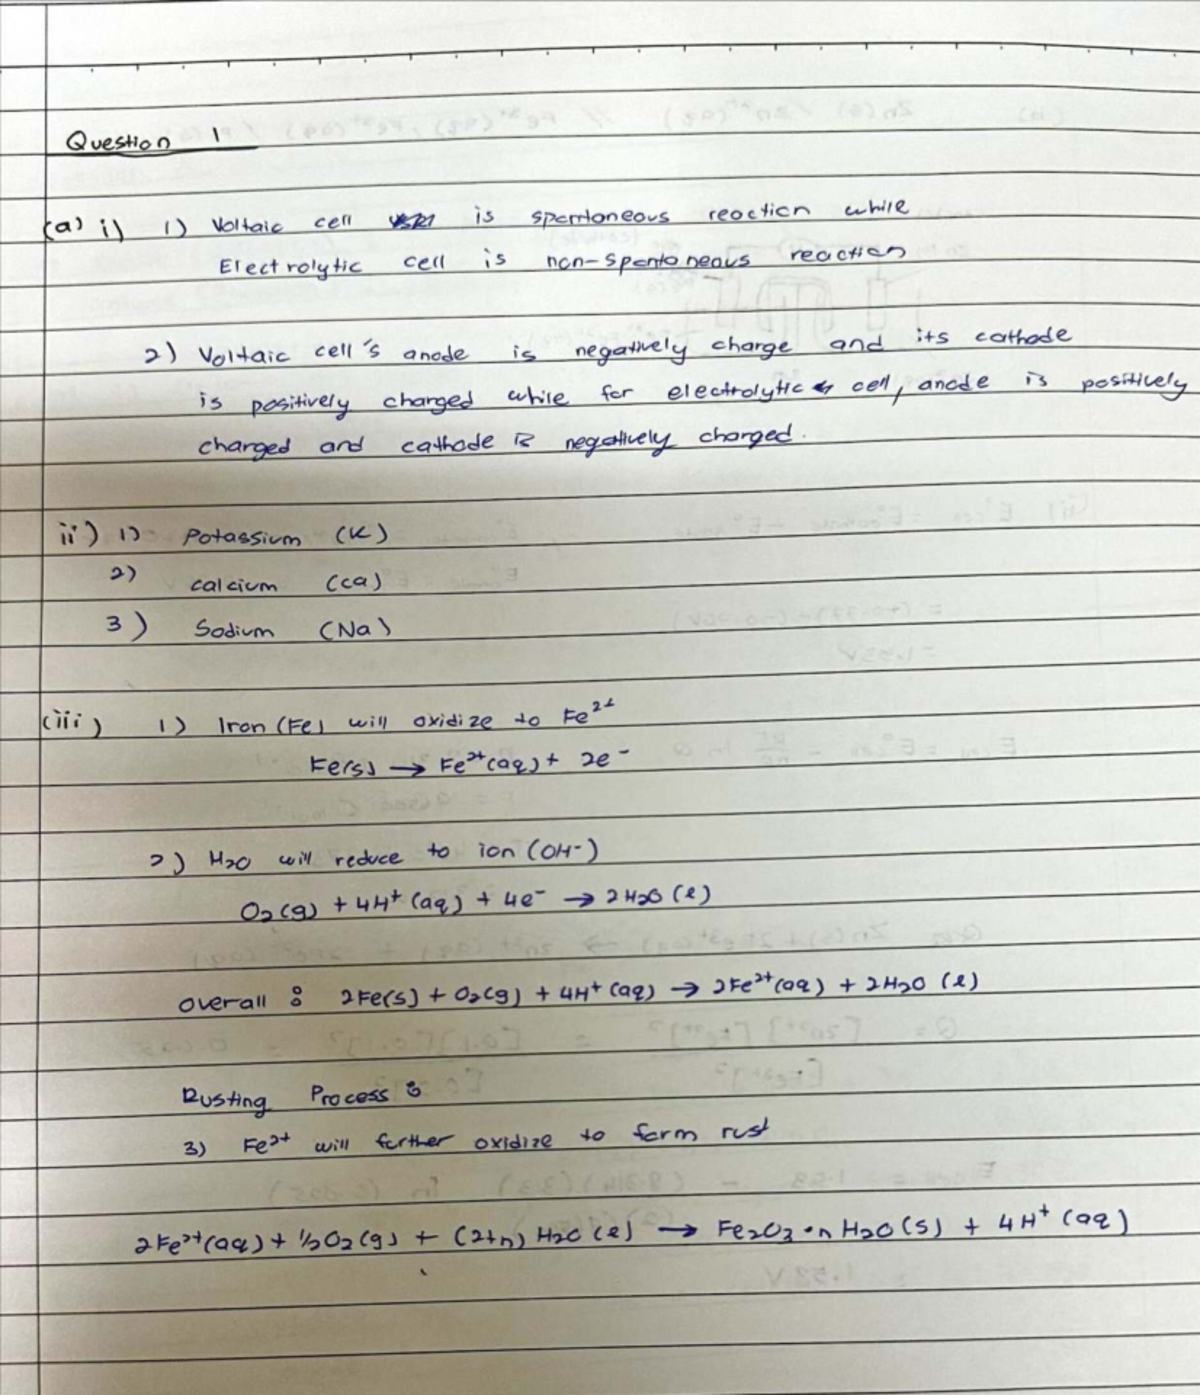 Question 1
(a) i) 1) Voltaic cell is spontaneous reaction while
Electrolytic cell is non-spontaneous reaction
2) Voltaic cell's anode is negatively charge and its cathode
is positively charged while for electrolytic cell, anode is positively
charged and cathode is negatively charged.
ii) 1) Potassium (K)
2) calcium (Ca)
3) Sodium (Na)
(iii) 1) Iron (Fe) will oxidize to Fe²⁺
Fe(s) → Fe²⁺(aq) + 2e⁻
2) H₂O will reduce to ion (OH⁻)
O₂(g) + 4H⁺(aq) + 4e⁻ → 2H₂O (l)
overall : 2Fe(s) + O₂(g) + 4H⁺(aq) → 2Fe²⁺(aq) + 2H₂O (l)
Rusting Process :
3) Fe²⁺ will further oxidize to form rust
2Fe²⁺(aq) + ½O₂(g) + (2+n) H₂O (l) → Fe₂O₃·nH₂O(s) + 4H⁺(aq)